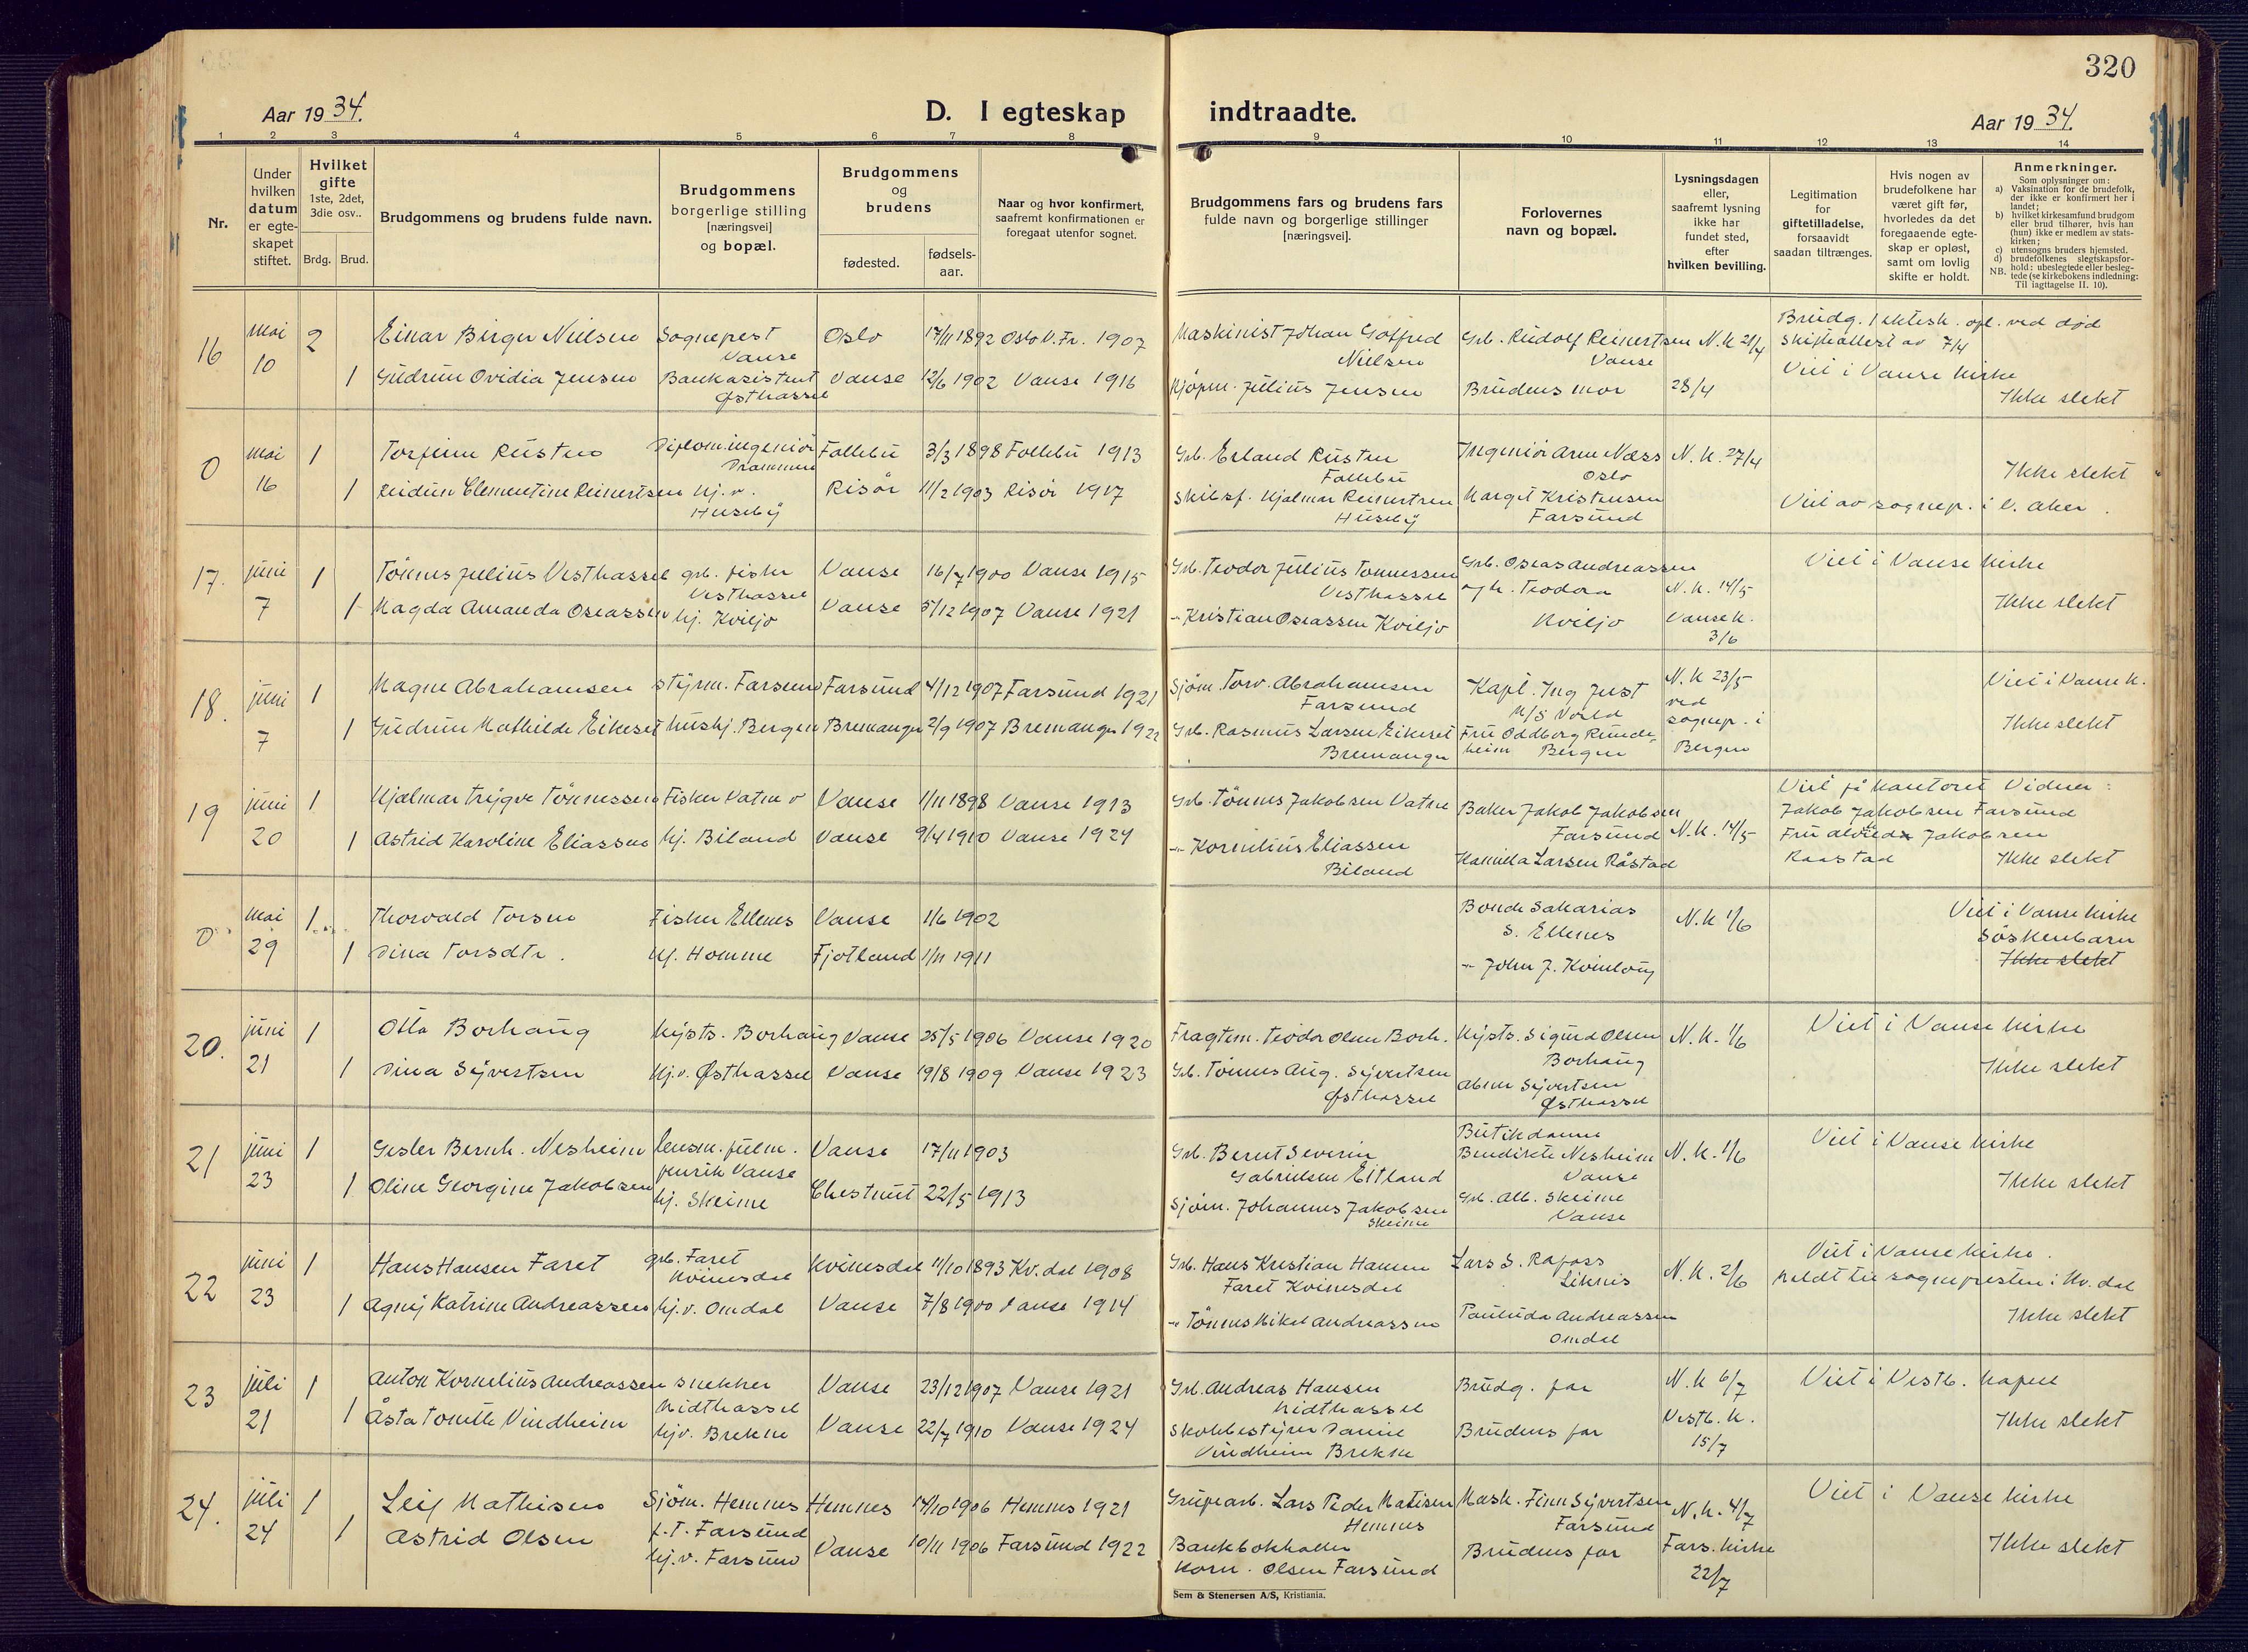 320
Aar 1934.
D. I egteskap indtraadte.
Aar 1934.
1 2 3 4 5 6 7 8 9 10 11 12 13 14
Nr.
Under hvilken datum er egte-skapet stiftet.
Hvilket gifte 1ste, 2det, 3die osv..
Brdg. Brud.
Brudgommens og brudens fulde navn.
Brudgommens borgerlige stilling [næringsvei] og bopæl.
Brudgommens og brudens
fødested.
fødsels-aar.
Naar og hvor konfirmert, saafremt konfirmationen er foregaat utenfor sognet.
Brudgommens fars og brudens fars fulde navn og borgerlige stillinger [næringsvei].
Forlovernes navn og bopæl.
Lysningsdagen eller, saafremt lysning ikke har fundet sted, efter hvilken bevilling.
Legitimation for giftetilladelse, forsaavidt saadan tiltrænges.
Hvis nogen av brudefolkene har været gift før, hvorledes da det foregaaende egte-skap er opløst, samt om lovlig skifte er holdt.
Anmerkninger.
Som oplysninger om:
a) Vaksination for de brudefolk, der ikke er konfirmert her i landet;
b) hvilket kirkesamfund brudgom eller brud tilhører, hvis han (hun) ikke er medlem av stats-kirken;
c) utensogns bruders hjemsted.
d) brudefolkenes slegtskapsfor-hold: ubeslegtede eller besleg-tede (se kirkebokens indledning:
NB. Til iagttagelse II. 10).
16 mai 10 2 Einar Birger Nielsen Sogneprest Vanse Oslo 17/11 1892 Oslo V. Fr. 1907 Maskinist Johan Gotfred Nielsen Grb. Rudolf Reinertsen Vanse N.K 21/4 Brudg. 1 ektesk. opl. ved død skifteattest av 7/4
1 Gudrun Ovidia Jensen Bankasistent Østhassel Vanse 12/6 1902 Vanse 1916 Kjøpm. Julius Jensen Brudens mor 28/4 Viet i Vanse kirke Ikke slekt
0 mai 16 1 Torfinn Rusten Diplom.ingeniør Drammen Follebu 3/3 1898 Follebu 1913 Grb. Erland Rusten Follebu Ingeniør Arne Næss Oslo N.K. 27/4 Ikke slekt
1 Reidun Clementine Reinertsen hj.v. Huseby Risør 11/2 1903 Risør 1917 Skibsf. Hjalmar Reinertsen Huseby Margit Kristensen Farsund Viet av sognepr. i v. Aker.
17. juni 7 1 Tönnes Julius Vesthassel grb. fisker Vesthassel Vanse 16/7 1900 Vanse 1915 Grb. Teodor Julius Tönnessen Vesthassel Grb. Oseas Andreassen og h. Teodora Kviljo N.K. 14/5 Viet i Vanse kirke
1 Magda Amanda Oseassen hj. Kviljo Vanse 5/12 1907 Vanse 1921 -"- Kristian Oseassen Kviljo Vanse k. 3/6 Ikke slekt
18. juni 7 1 Magne Abrahamsen Styrm. Farsund Farsund 4/12 1907 Farsund 1921 Sjöm. Torv. Abrahamsen Farsund Kapt. Ing Just M/S Vorld N.K 23/5 ved sognepr. i Bergen Viet i Vanse k.
1 Gudrun Mathilde Eikeset hushj. Bergen Bremanger 2/9 1907 Bremanger 1922 Grb. Rasmus Larsen Eikeset Bremanger Fru Oddberg Rundeheim Bergen Ikke slekt
19 juni 20 1 Hjalmar Trygve Tönnessen Fisker Vatne Vanse 1/11 1898 Vanse 1913 Grb. Tönnes Jakobsen Vatne Baker Jakob Jakobsen Farsund N.K. 14/5 Viet på kontoret Vidner: Jakob Jakobsen Farsund
1 Astrid Karoline Eliassen hj. Biland Vanse 9/4 1910 Vanse 1924 -"- Kornelius Eliassen Biland Kamilla Larsen Råstad Fru Jakobsen Raastad Ikke slekt
0 mai 29 1 Thorvald Torsen Fisker Ellenes Vanse 1/6 1902 Bonde Sakarias S. Ellenes N.K 1/6 Viet i Vanse kirke Söskenbarn
1 Dina Torsdtr. Hj. Homme Fjotland 1/11 1911 -"- John J. Kvinlaug Ikke slekt
20. juni 21 1 Otto Borhaug Kysts. Borhaug Vanse 25/5 1906 Vanse 1920 Fragtem. Teodor Olsen Borh. Kysts. Sigurd Olsen Borhaug N.K. 1/6 Viet i Vanse kirke
1 Dina Syvertsen Hj.v. Østhassel Vanse 19/8 1909 Vanse 1923 Grb. Tönnes Aug. Syvertsen Østhassel Abein Syvertsen Østhassel Ikke slekt
21 juni 23 1 Gesler Bernh. Nesheim lensm. fulm. Vanse Vanse 17/11 1903 Grb. Bernt Severin Gabrielsen Eitland Butikdame Bendikte Nesheim Vanse N.K. 1/6 Viet i Vanse kirke
1 Oline Georgine Jakobsen hj. Skeime Chestnut 22/5 1913 Sjöm. Johannes Jakobsen Skeime Grb. Alb. Skeime Vanse Ikke slekt
22 juni 23 1 Hans Hansen Faret grb. Faret Kvinesdal Kvinesdal 11/10 1893 Kv.dal 1908 Grb. Hans Kristian Hansen Faret Kvinesdal Lars S. Rafoss Liknes N.K. 2/6 Viet i Vanse kirke. Meldt til sognepresten i Kv.dal
1 Agny Katrine Andreassen hj.v. Omdal Vanse 7/8 1900 Vanse 1914 -"- Tönnes Mikal Andreassen Paulida Andreassen Omdal Ikke slekt
23 juli 21 1 Anton Kornelius Andreassen Snekker Midthassel Vanse 23/12 1907 Vanse 1921 Grb. Andreas Hansen Midthassel Brudg. far N.K 6/7 Viet i Vestb. kapell
1 Åsta Tomille Vindheim hjv. Brekne Vanse 22/7 1910 Vanse 1924 Skolebestyrer Daniel Vindheim Brekne Brudens far Vestb. k. 15/7 Ikke slekt
24. juli 24 1 Leif Mathisen Sjöm. Hemnes f.T. Farsund Hemnes 14/10 1906 Hemnes 1921 Grupearb. Lars Peder Matisen Hemnes Mask. Finn Syvertsen Farsund N.K. 4/7 Viet i Vanse kirke
1 Astrid Olsen hj.v. Farsund Vanse 10/11 1906 Farsund 1922 Bankbokholder Korn. Olsen Farsund Brudens far Fars. kirke 22/7 Ikke slekt
Sem & Stenersen A/S, Kristiania.